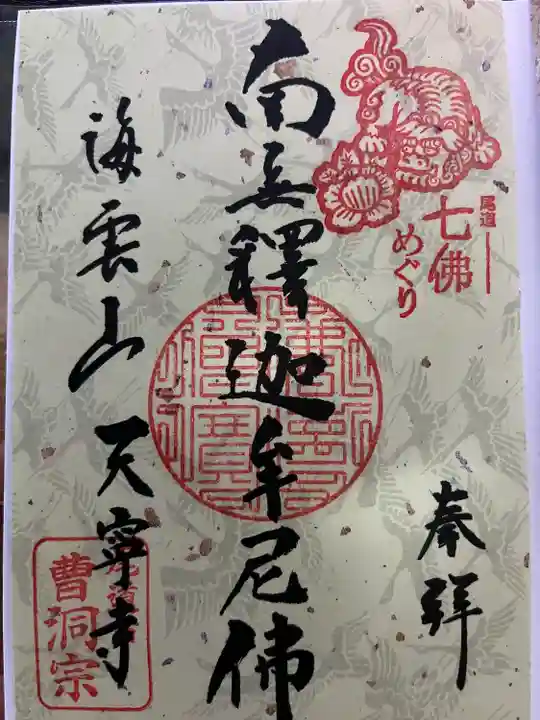 尾道
七佛
めぐり
奉拝
南無釋迦牟尼佛
海雲山天寧寺
曹洞宗